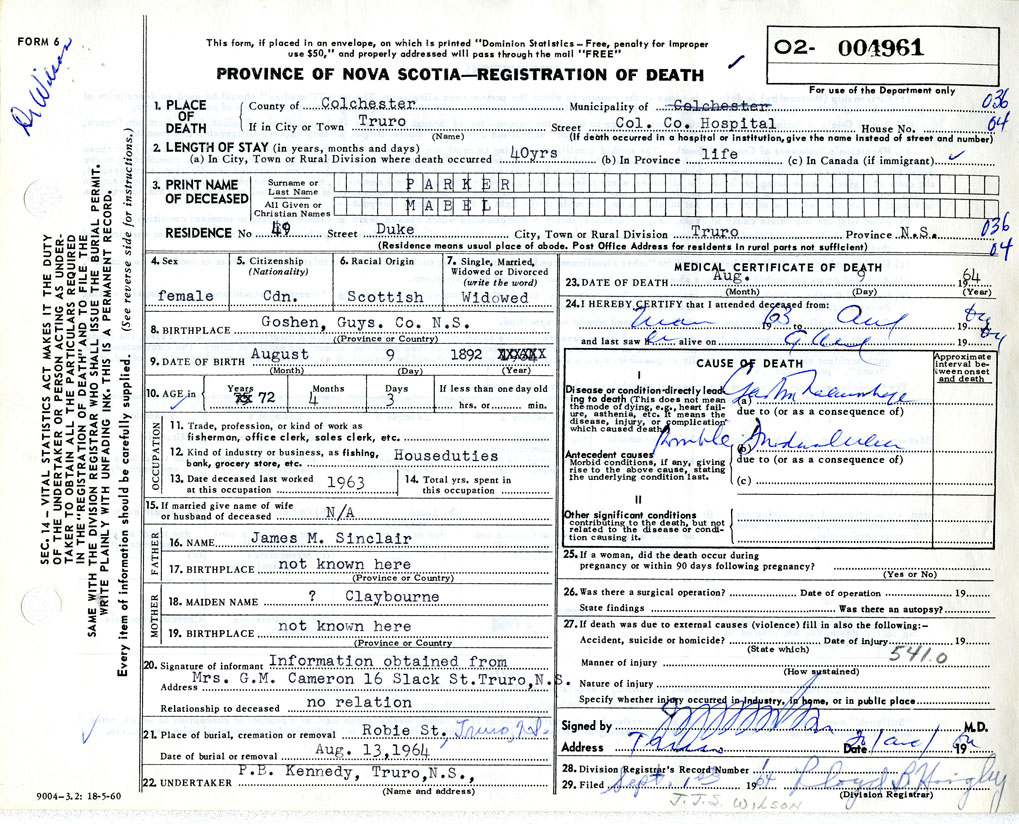 FORM 6
Dr Wilson
This form, if placed in an envelope, on which is printed "Dominion Statistics – Free, penalty for improper
use $50," and properly addressed will pass through the mail "FREE"
PROVINCE OF NOVA SCOTIA—REGISTRATION OF DEATH
02- 004961
For use of the Department only
036
04
1. PLACE OF DEATH
County of Colchester Municipality of Colchester
If in City or Town Truro Street Col. Co. Hospital House No.
(Name) (If death occurred in a hospital or institution, give the name instead of street and number)
2. LENGTH OF STAY (in years, months and days)
(a) In City, Town or Rural Division where death occurred 40yrs (b) In Province life (c) In Canada (if immigrant)
3. PRINT NAME OF DECEASED
Surname or Last Name PARKER
All Given or Christian Names MABEL
RESIDENCE No 49 Street Duke City, Town or Rural Division Truro Province N.S.
036
04
(Residence means usual place of abode. Post Office Address for residents in rural parts not sufficient)
4. Sex
female
5. Citizenship (Nationality)
Cdn.
6. Racial Origin
Scottish
7. Single, Married, Widowed or Divorced (write the word)
Widowed
8. BIRTHPLACE Goshen, Guys. Co. N.S.
(Province or Country)
9. DATE OF BIRTH August 9 1892
(Month) (Day) (Year)
10. AGE in Years 72 Months 4 Days 3 If less than one day old hrs. or min.
OCCUPATION
11. Trade, profession, or kind of work as
fisherman, office clerk, sales clerk, etc.
12. Kind of industry or business, as fishing,
bank, grocery store, etc. Houseduties
13. Date deceased last worked
at this occupation 1963
14. Total yrs. spent in
this occupation
15. If married give name of wife
or husband of deceased N/A
FATHER
16. NAME James M. Sinclair
17. BIRTHPLACE not known here
(Province or Country)
MOTHER
18. MAIDEN NAME ? Claybourne
19. BIRTHPLACE not known here
(Province or Country)
20. Signature of informant Information obtained from
Address Mrs. G.M. Cameron 16 Slack St. Truro, N.S.
Relationship to deceased no relation
21. Place of burial, cremation or removal Robie St. Truro, N.S.
Date of burial or removal Aug. 13, 1964
22. UNDERTAKER P.B. Kennedy, Truro, N.S.,
(Name and address)
MEDICAL CERTIFICATE OF DEATH
23. DATE OF DEATH Aug. 9 19 64
(Month) (Day) (Year)
24. I HEREBY CERTIFY that I attended deceased from:
19 63 to Aug 19 64
and last saw her alive on 9 19 64
CAUSE OF DEATH
Approximate interval between onset and death
I
Disease or condition directly leading to death (This does not mean
the mode of dying, e.g., heart failure, asthenia, etc. It means the
disease, injury, or complication
which caused death)
(a)
due to (or as a consequence of)
Antecedent causes
Morbid conditions, if any, giving
rise to the above cause, stating
the underlying condition last.
(b)
due to (or as a consequence of)
(c)
II
Other significant conditions
contributing to the death, but not
related to the disease or condition causing it.
25. If a woman, did the death occur during
pregnancy or within 90 days following pregnancy?
(Yes or No)
26. Was there a surgical operation? Date of operation 19
State findings Was there an autopsy?
27. If death was due to external causes (violence) fill in also the following:-
Accident, suicide or homicide? Date of injury 19
(State which)
541.0
Manner of injury
(How sustained)
Nature of injury
Specify whether injury occurred in Industry, in home, or in public place
Signed by M.D.
Address Truro Date 19
28. Division Registrar's Record Number
29. Filed Sept. 1st 1964
(Division Registrar)
J.J.S. WILSON
9004-3.2: 18-5-60
SEC. 14 – VITAL STATISTICS ACT MAKES IT THE DUTY
OF THE UNDERTAKER OR PERSON ACTING AS UNDERTAKER TO OBTAIN ALL THE PARTICULARS REQUIRED
IN THE "REGISTRATION OF DEATH" AND TO FILE THE
SAME WITH THE DIVISION REGISTRAR WHO SHALL ISSUE THE BURIAL PERMIT.
WRITE PLAINLY WITH UNFADING INK. THIS IS A PERMANENT RECORD.
Every item of information should be carefully supplied. (See reverse side for instructions.)